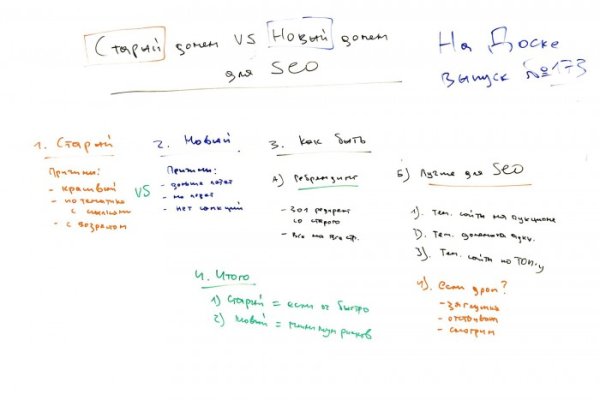 Старый домен VS Новый домен
для SEO
На Доске
выпуск №173
1. Старый
Причины:
- красивый
- по тематике
с ссылками
- с возрастом
VS
2. Новый
Причины:
- дольше
- нет санкций
3. Как быть
А) Ребрендинг
- 301 редирект
со старого
- Все на все стр.
Б) Лучше для SEO
1). Тем. сайты на аукционе
2). Тем. домены
3). Тем. сайты по ТОП-у
4). если дроп?
- загнули
- отстоим
- смотрим
4. Итого
1) Старый = если оч быстро
2) Новый = минимум рисков